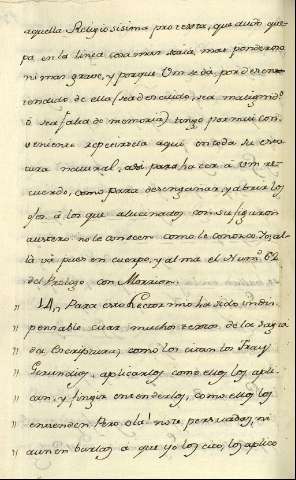 aquella Religiosisima protexta, que dudo que
pa en la linea cosa mas seria, mas ponderosa
ni mas grave, y porque Vm se dà por desen
tendido de ella (sea descuido, sea malignid.
ò sea falta de memoria) tengo por mui con
veniente repetirsela aqui en toda su esta
tura natural, assi para hacer à Vm re
cuerdo, como para desengañar, y abrir los
ojos à los que alucinados con su figuron
austero no le conocen como le conozco Yo; al
la và pues en cuerpo, y alma el Num.º 64
del Prologo con Morrion.
" 64, Para esto Lector mio ha sido indis
" pensable citar muchos textos de la Sagra
" da Escriptura, como los citan los Fray
" Gerundios, aplicarlos como ellos los apli
" can, y fingir entenderlos, como ellos los
" entienden. Pero ola! no te persuadas, ni
" aun en burlas à que yo los cito, los aplico